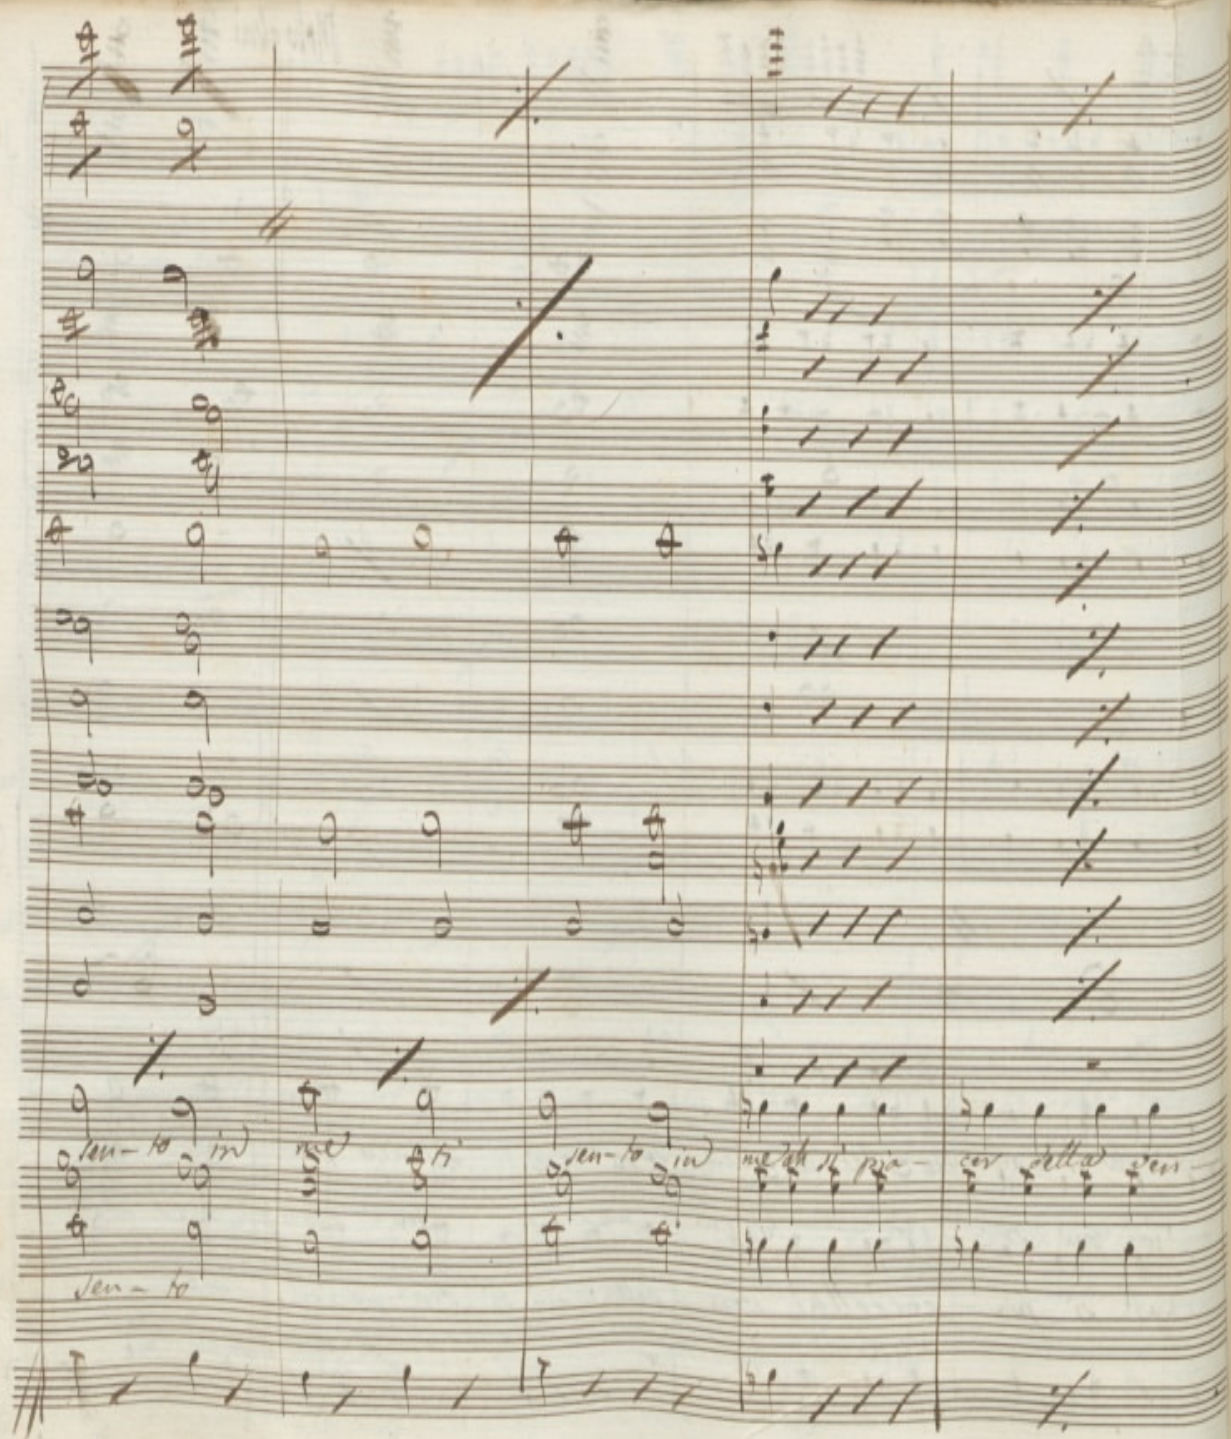 sen-to in me ti sen-to in me ah si pia-cer della ven
sen-to